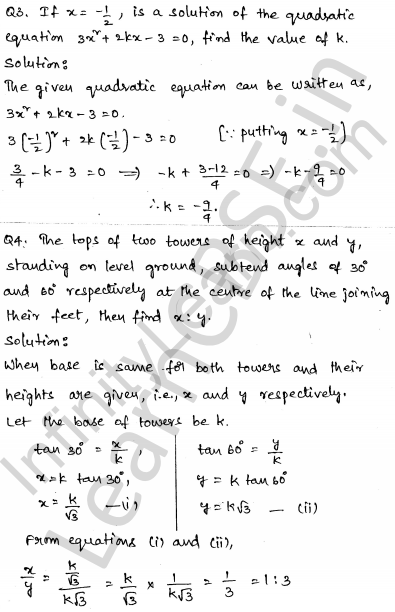 Q3. If x = -1/2, is a solution of the quadratic
equation 3x² + 2kx - 3 = 0, find the value of k.
Solution:
The given quadratic equation can be written as,
3x² + 2kx - 3 = 0.
3(-1/2)² + 2k(-1/2) - 3 = 0 [∵ putting x = -1/2]
3/4 - k - 3 = 0 ⇒ -k + (3-12)/4 = 0 ⇒ -k - 9/4 = 0
∴ k = -9/4.
Q4. The tops of two towers of height x and y,
standing on level ground, subtend angles of 30°
and 60° respectively at the centre of the line joining
their feet, then find x : y.
Solution:
When base is same for both towers and their
heights are given, i.e., x and y respectively.
Let the base of towers be k.
tan 30° = x/k,
x = k tan 30°,
x = k/√3 — (i)
tan 60° = y/k
y = k tan 60°
y = k√3 — (ii)
From equations (i) and (ii),
x/y = (k/√3)/(k√3) = k/√3 × 1/(k√3) = 1/3 = 1 : 3
Infinity
Learn
CBSE.in
.com